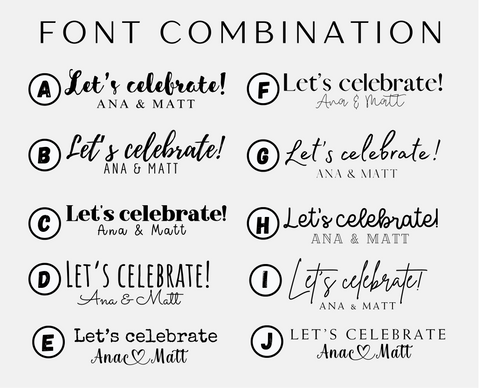 FONT COMBINATION
A Let's celebrate!
ANA & MATT
B Let's celebrate!
ANA & MATT
C Let's celebrate!
Ana & Matt
D LET'S CELEBRATE!
Ana & Matt
E Let's celebrate
Ana Matt
F Let's celebrate!
Ana & Matt
G Let's celebrate!
ANA & MATT
H Let's celebrate!
ANA & MATT
I Let's celebrate!
ANA & MATT
J LET'S CELEBRATE
Ana Matt